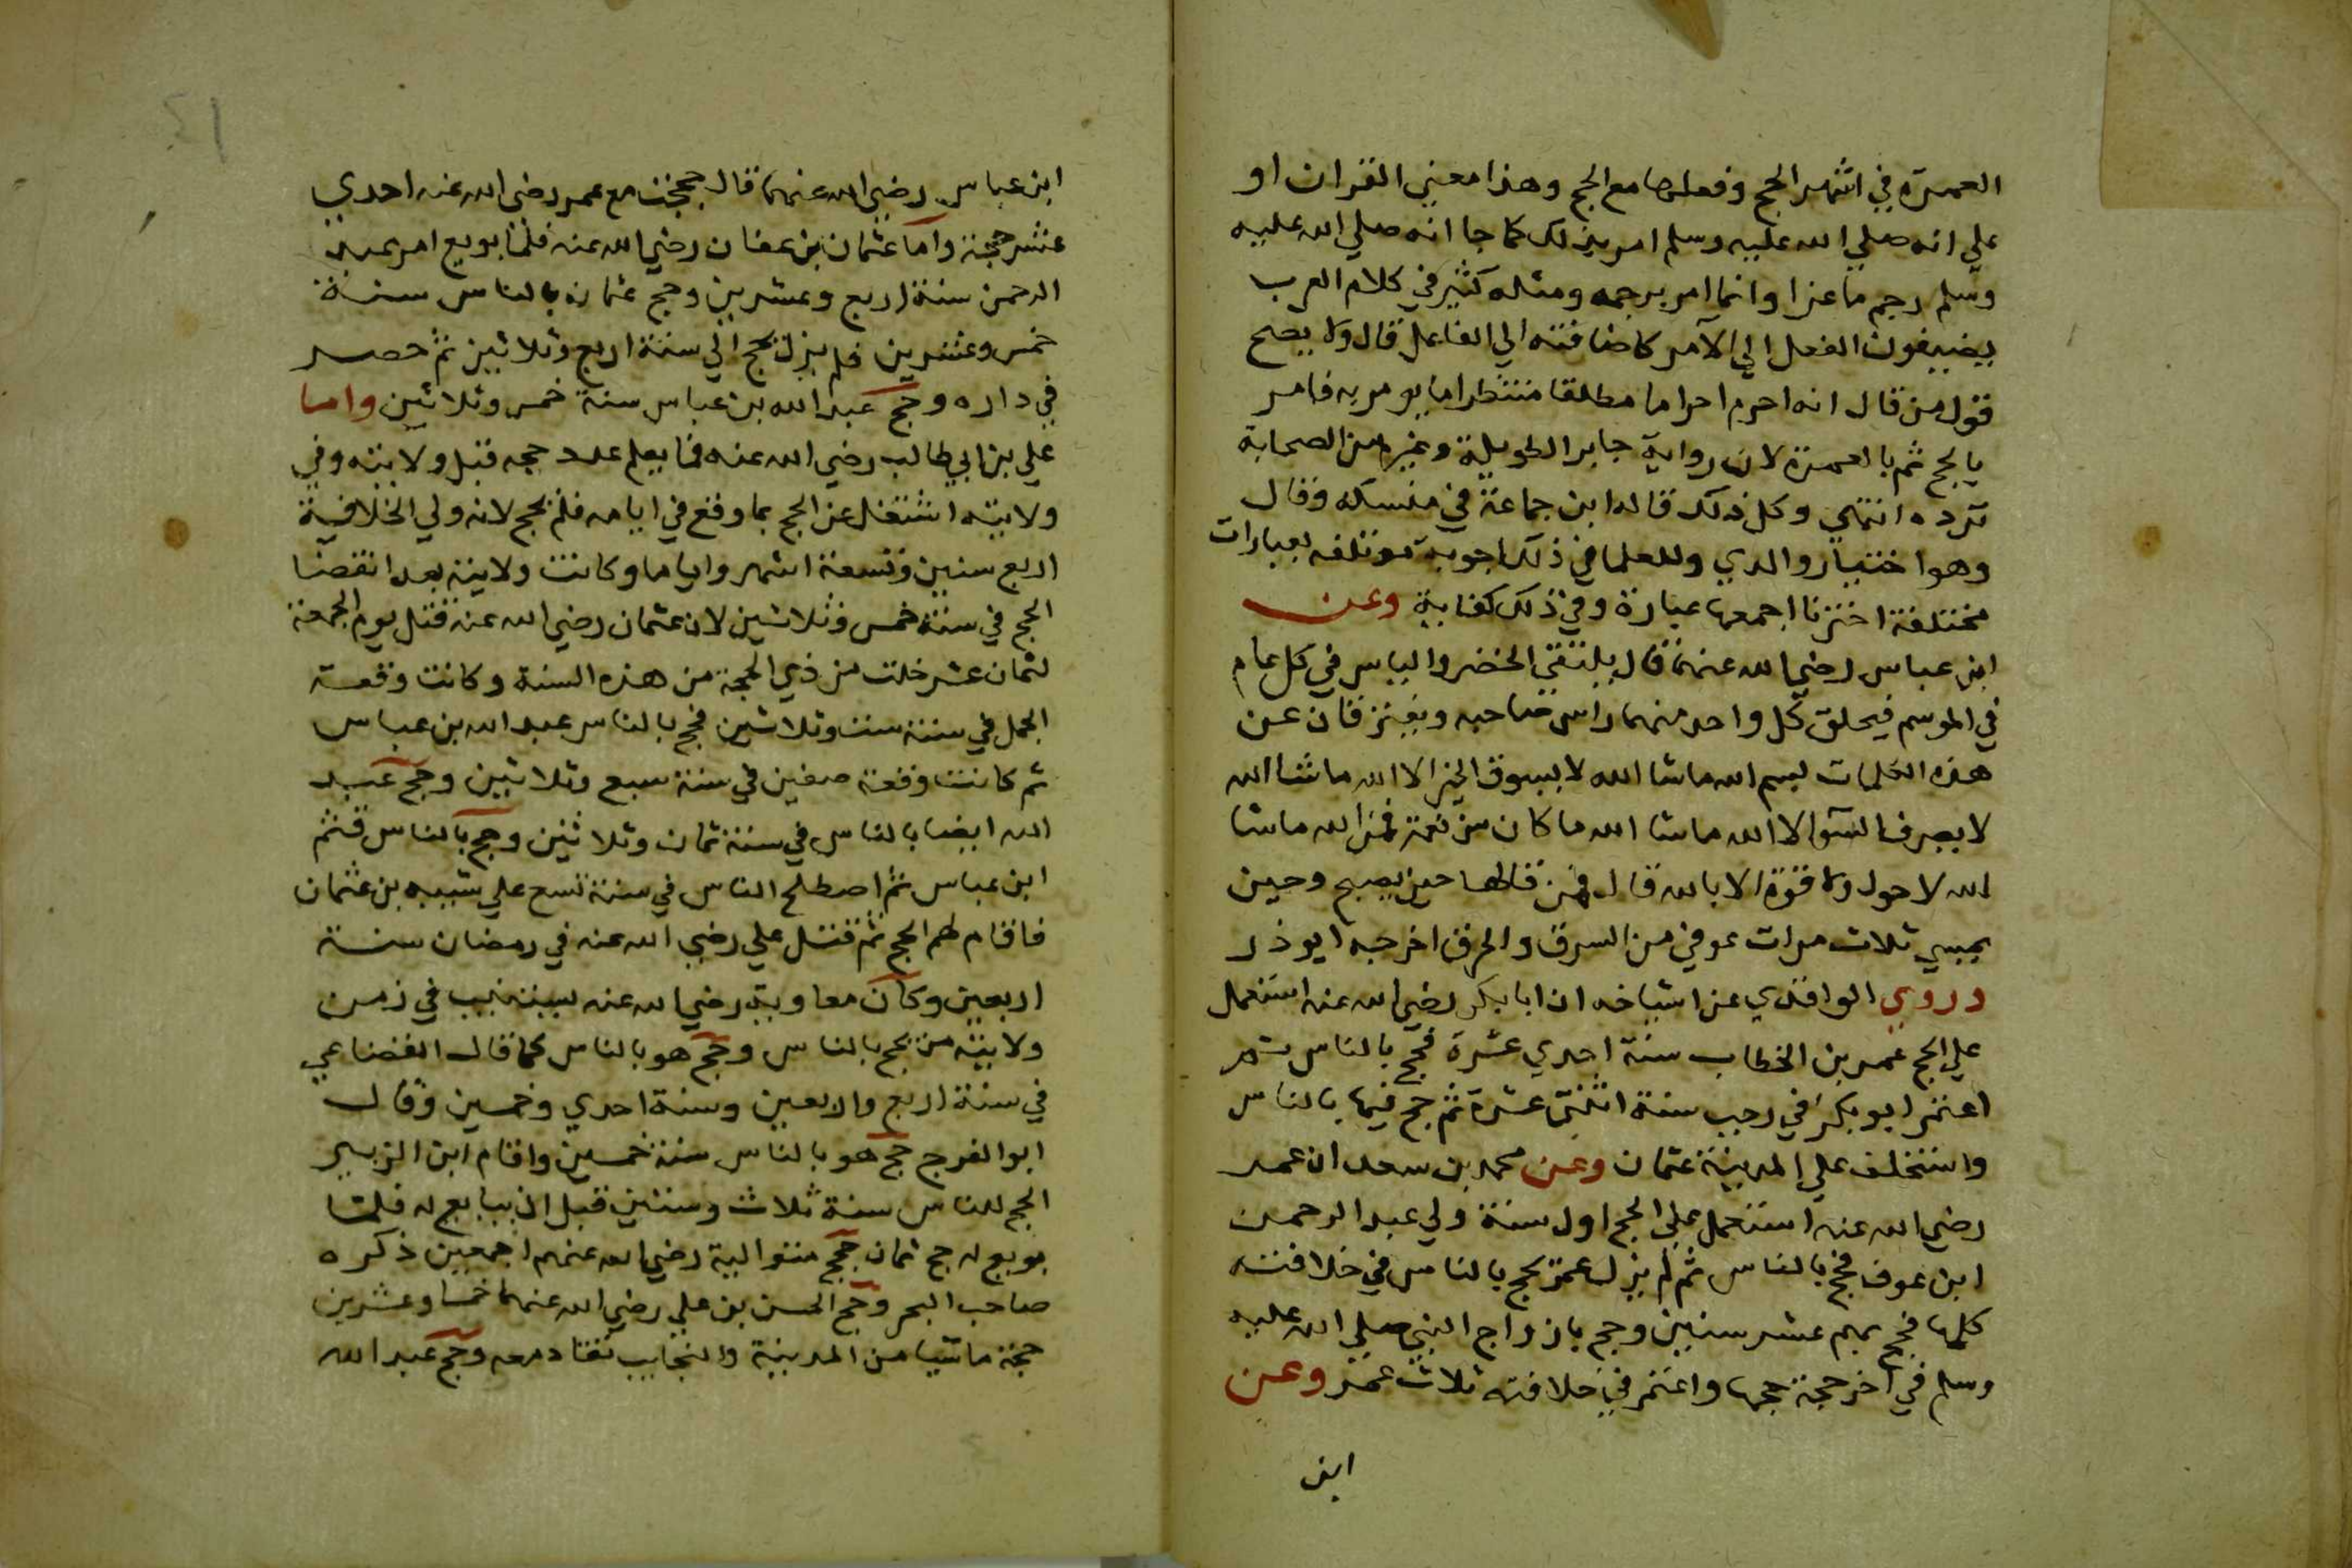 العمرة في اشهر الحج وفعلها مع الحج وهذا معني القران او
علي انه صلي الله عليه وسلم امر بذلك كما جا انه صلي الله عليه
وسلم رجم ماعزا وانما امر برجمه ومثله كثير في كلام العرب
يضيفون الفعل الي الآمر كاضافته الي الفاعل قال ولا يصح
قول من قال انه احرم احراما مطلقا منتظرا ما يومر به فامر
بالحج ثم بالعمرة لان رواية جابر الطويلة وغيره من الصحابة
ترده انتهي وكل ذلك قاله ابن جماعة في منسكه وقال
وهو اختيار والدي وللعلما في ذلك اجوبة موتلفه بعبارات
مختلفة اخترنا اجمعها عبارة وفي ذلك كفاية وعن
ابن عباس رضي الله عنهما قال يلتقي الخضر والياس في كل عام
في الموسم فيحلق كل واحد منهما راس صاحبه ويفترقان عن
هذه الكلمات بسم الله ماشا الله لا يسوق الخير الا الله ماشا الله
لا يصرف السوا الا الله ماشا الله ما كان من نعمة فمن الله ماشا
الله لا حول ولا قوة الا بالله قال فمن قالها حين يصبح وحين
يمسي ثلاث مرات عوفي من السرق والحرق اخرجه ابو ذر
وروي الواقدي عن اشياخه ان ابا بكر رضي الله عنه استعمل
علي الحج عمر بن الخطاب سنة احدي عشرة فحج بالناس ثم
اعتمر ابو بكر في رجب سنة اثنتي عشرة ثم حج فيها بالناس
واستخلف علي المدينة عثمان وعن محمد بن سعد ان عمر
رضي الله عنه استعمل علي الحج اول سنة ولي عبد الرحمن
ابن عوف فحج بالناس ثم لم يزل عمر يحج بالناس في خلافته
كلها فحج بهم عشر سنين وحج بازواج النبي صلي الله عليه
وسلم في آخر حجة حجها واعتمر في خلافته ثلاث عمر وعن
ابن
ابن عباس رضي الله عنهما قال حججت مع عمر رضي الله عنه احدي
عشر حجة واما عثمان بن عفان رضي الله عنه فلما بويع امر عبد
الرحمن سنة اربع وعشرين وحج عثمان بالناس سنة
خمس وعشرين فلم يزل يحج الي سنة اربع وثلاثين ثم حصر
في داره وحج عبد الله بن عباس سنة خمس وثلاثين واما
علي بن ابي طالب رضي الله عنه فما يعلم عدد حجه قبل ولايته وفي
ولايته اشتغل عن الحج بما وقع في ايامه فلم يحج لانه ولي الخلافة
اربع سنين وتسعة اشهر واياما وكانت ولايته بعد انقضا
الحج في سنة خمس وثلاثين لان عثمان رضي الله عنه قتل يوم الجمعة
لثمان عشر خلت من ذي الحجة من هذه السنة وكانت وقعة
الجمل في سنة ست وثلاثين فحج بالناس عبد الله بن عباس
ثم كانت وقعة صفين في سنة سبع وثلاثين وحج عبد
الله ايضا بالناس في سنة ثمان وثلاثين وحج بالناس قثم
ابن عباس ثم اصطلح الناس في سنة تسع علي شيبه بن عثمان
فاقام لهم الحج ثم قتل علي رضي الله عنه في رمضان سنة
اربعين وكان معاوية رضي الله عنه يستنيب في زمن
ولايته من يحج بالناس وحج هو بالناس كما قال القضاعي
في سنة اربع واربعين وسنة احدي وخمسين وقال
ابو الفرج حج هو بالناس سنة خمسين واقام ابن الزبير
الحج للناس سنة ثلاث وستين قبل ان يبايع له فلما
بويع له حج ثمان حجج متوالية رضي الله عنهم اجمعين ذكره
صاحب البحر وحج الحسن بن علي رضي الله عنهما خمسا وعشرين
حجة ماشيا من المدينة والنجايب تقاد معه وحج عبد الله